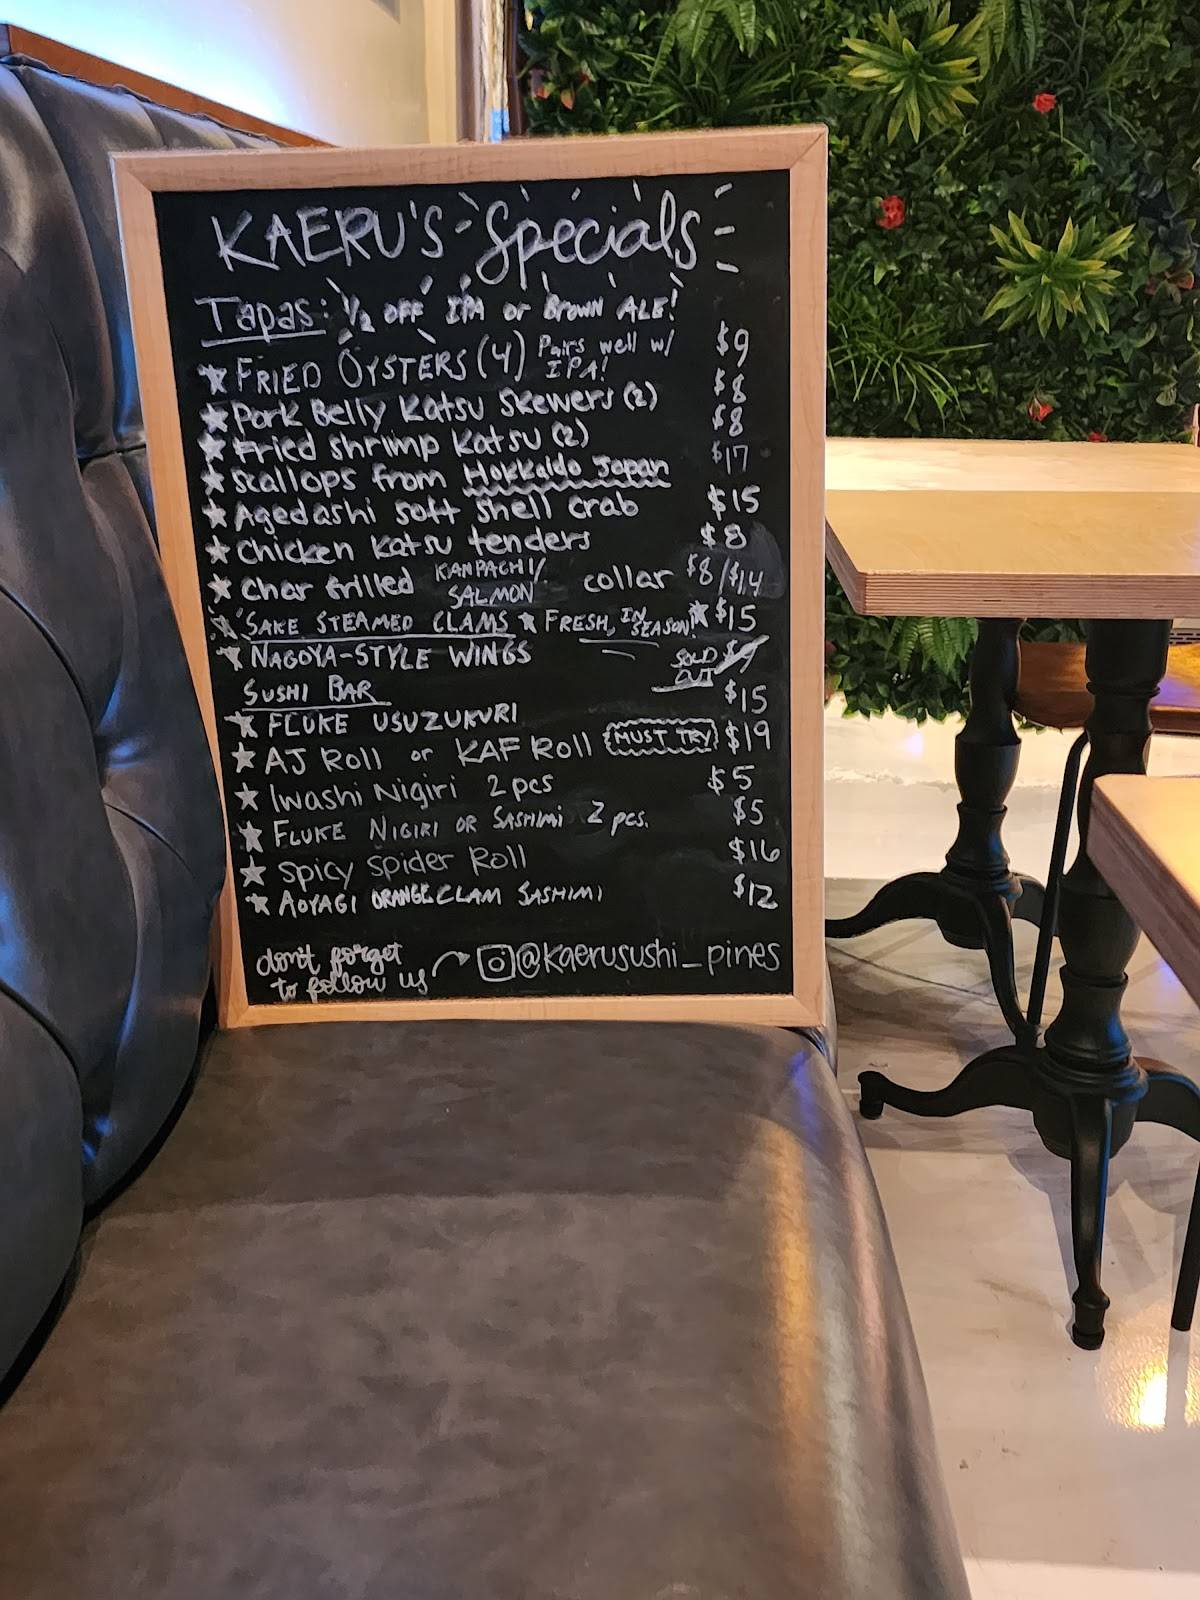 KAERU'S Specials
Tapas: 1/2 OFF IPA or Brown ALE!
FRIED OYSTERS (4) Pairs well w/ IPA! $9
Pork Belly Katsu Skewers (2) $8
Fried Shrimp Katsu (2) $8
Scallops from Hokkaido Japan $17
Agedashi soft shell crab $15
Chicken Katsu tenders $8
Char Grilled KANPACHI/ SALMON collar $8/$14
SAKE STEAMED CLAMS FRESH, IN SEASON! $15
NAGOYA-STYLE WINGS SOLD OUT $9
SUSHI BAR
FLUKE USUZUKURI $15
AJ Roll or KAF Roll MUST TRY $19
Iwashi Nigiri 2 pcs $5
FLUKE NIGIRI OR SASHIMI 2 pcs. $5
Spicy Spider Roll $16
AOYAGI ORANGE CLAM SASHIMI $12
don't forget
to follow us @kaerusushi_pines